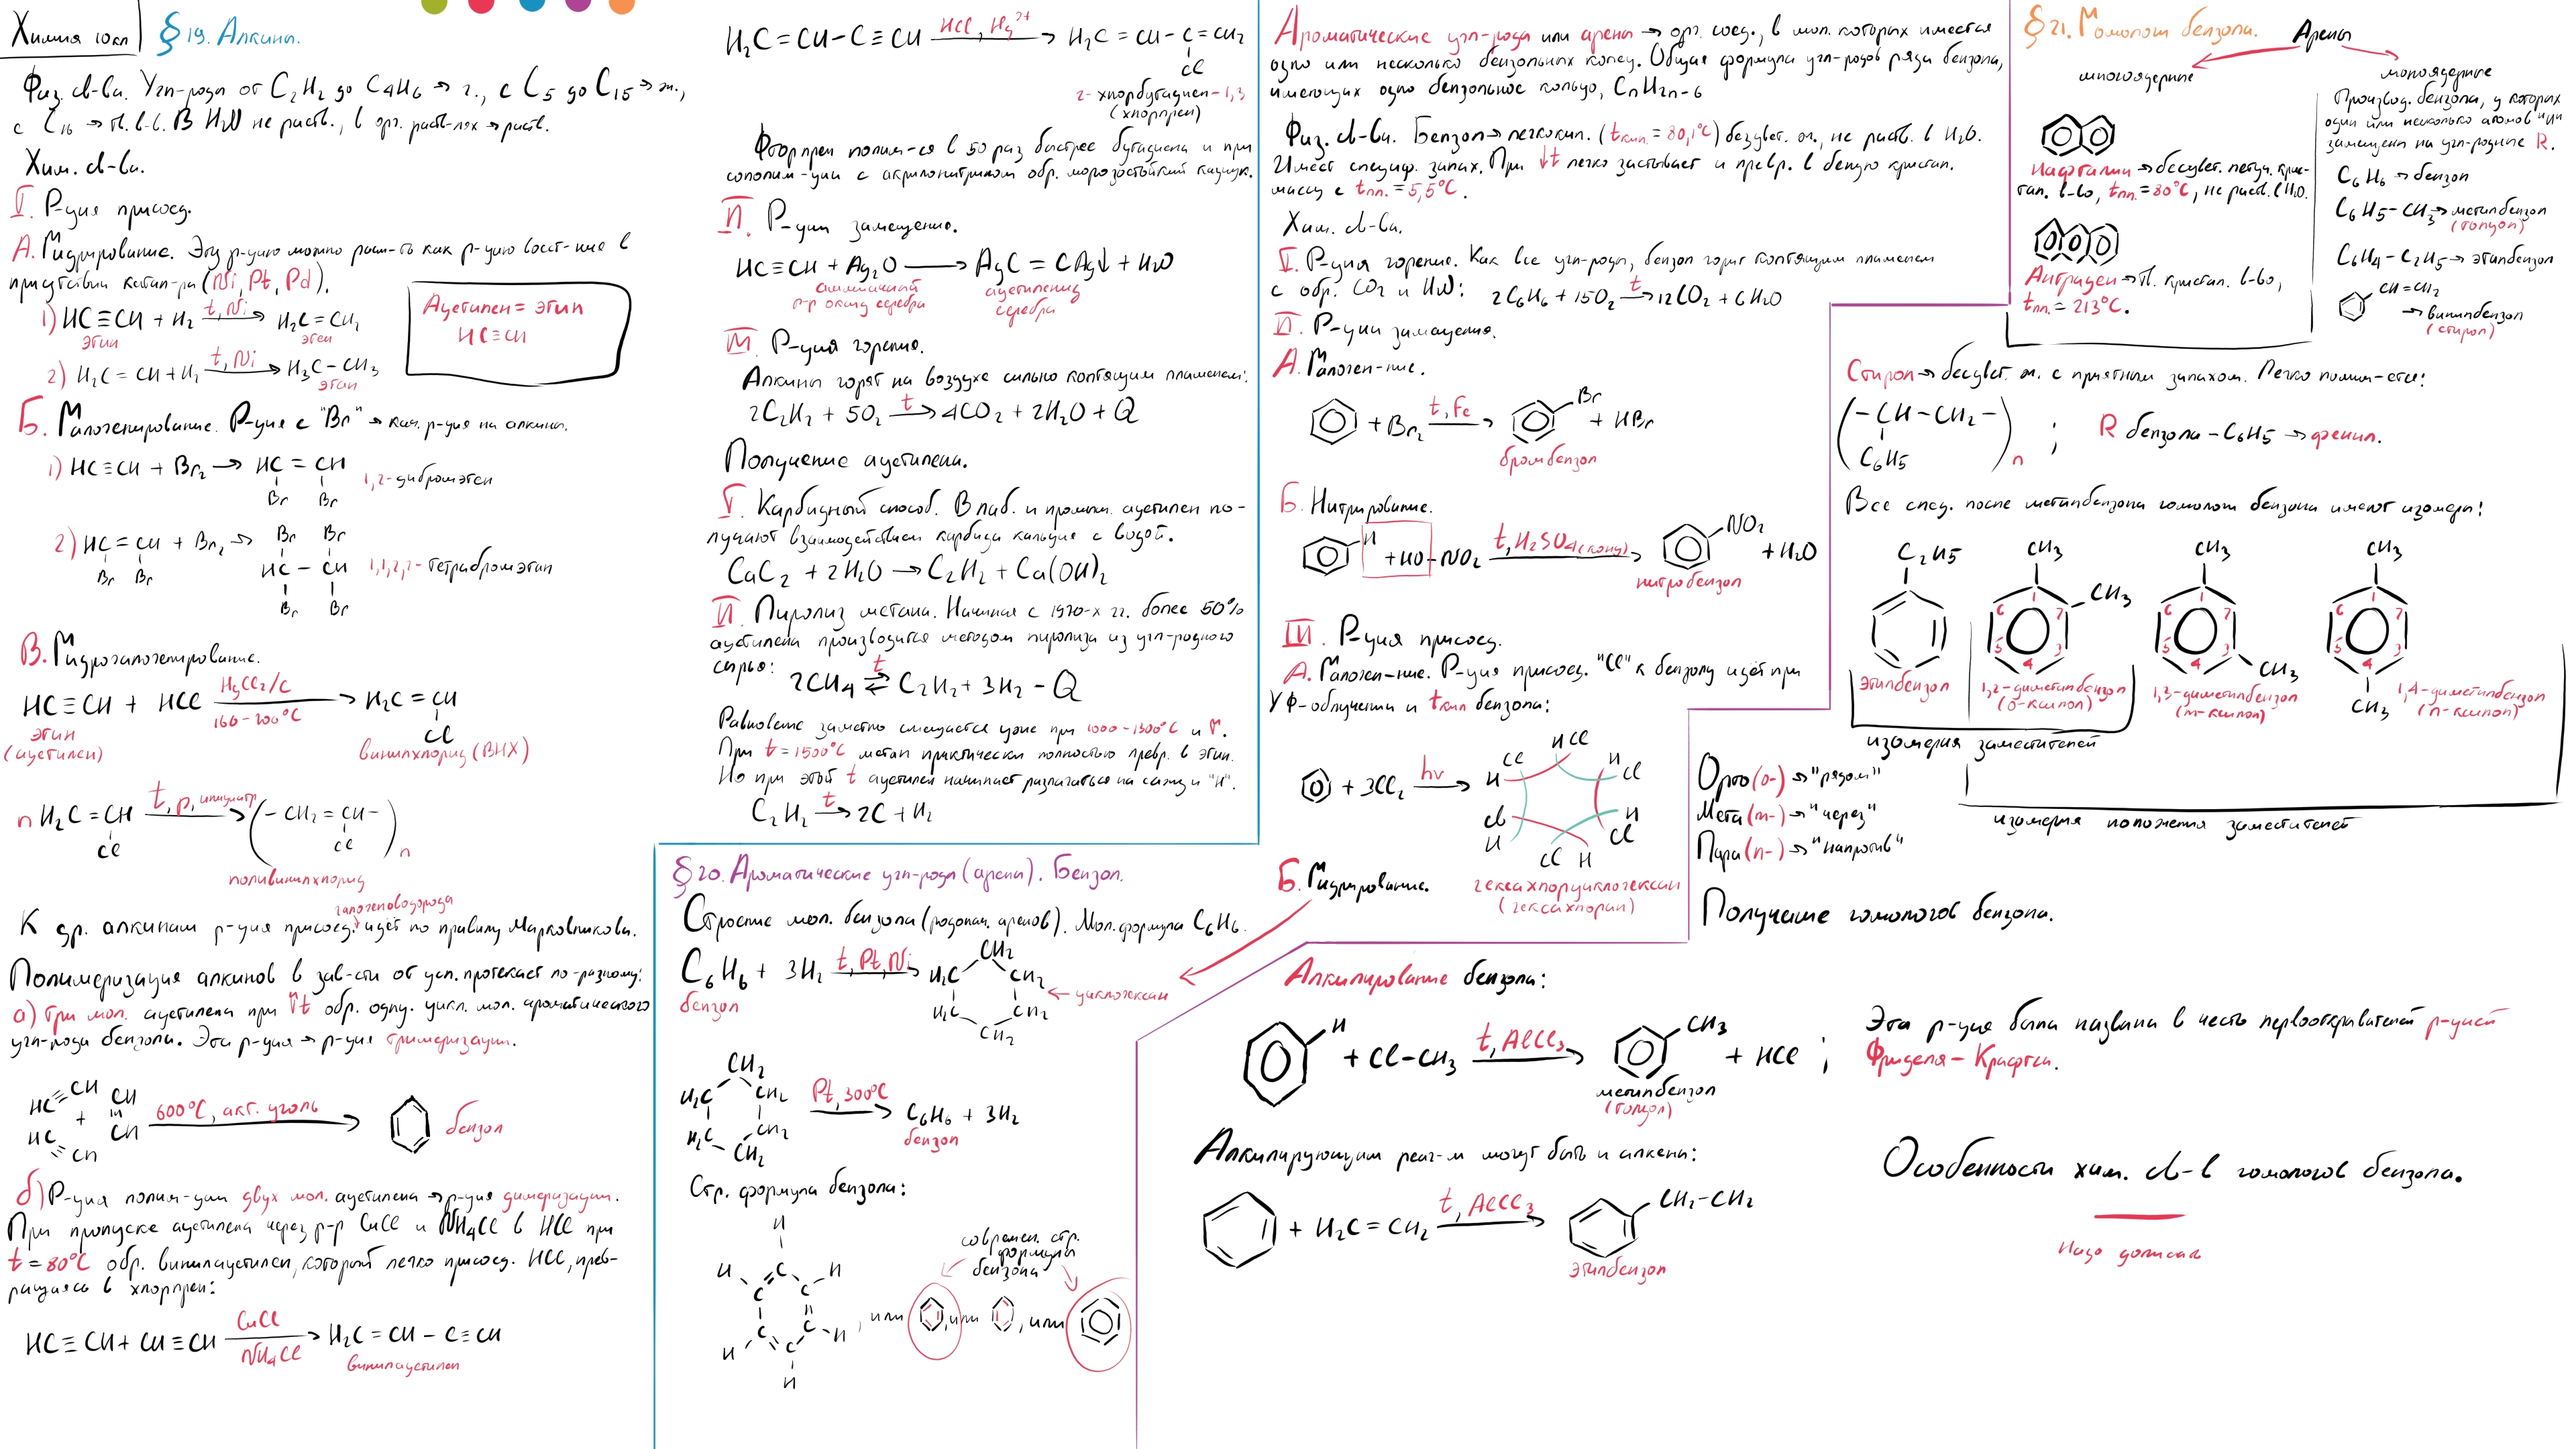 Химия 10кл
§ 19. Алкины.
Физ. св-ва. Угл-роды от C₂H₂ до C₄H₆ → г., с C₅ до C₁₅ → ж.,
с C₁₆ → тв. в-в. В H₂O не раств., в орг. раств-лях → раств.
Хим. св-ва.
I. Р-ция присоед.
А. Гидрирование. Эту р-цию можно расм-ть как р-цию восст-ние в
присутствии катал-ра (Ni, Pt, Pd).
1) HC≡CH + H₂ t, Ni → H₂C=CH₂
этин этен
2) H₂C=CH+H₂ t, Ni → H₃C−CH₃
этан
Ацетилен = этин
HC≡CH
Б. Галогенирование. Р-ция с "Br" → кач. р-ция на алкины.
1) HC≡CH + Br₂ → HC=CH
Br Br
1,2-дибромэтен
2) HC=CH + Br₂ → Br Br
Br Br HC − CH
Br Br
1,1,2,2-тетрабромэтан
В. Гидрогалогенирование.
HC≡CH + HCl HgCl₂/C → H₂C=CH
160-200°C Cl
этин
(ацетилен)
винилхлорид (ВНХ)
n H₂C=CH t, p, инициатр → (−CH₂=CH−)n
Cl Cl
поливинилхлорид
галогеноводорода
К др. алкинам р-ция присоед. идёт по правилу Марковникова.
Полимеризация алкинов в зав-сти от усл. протекает по-разному:
а) три мол. ацетилена при ↑t обр. одну. цикл. мол. ароматического
угл-рода бензола. Эта р-ция → р-ция тримеризации.
HC≡CH
+ CH≡CH 600°C, акт. уголь →
HC≡CH
бензол
б) Р-ция полим-ции двух мол. ацетилена → р-ция димеризации.
При пропуске ацетилена через р-р CuCl и NH₄Cl в HCl при
t = 80°C обр. винилацетилен, который легко присоед. HCl, прев-
ращаясь в хлорпрен:
HC≡CH + CH≡CH CuCl → H₂C=CH−C≡CH
NH₄Cl
винилацетилен
H₂C=CH−C≡CH HCl, Hg²⁺ → H₂C=CH−C=CH₂
Cl
2-хлорбутадиен-1,3
(хлорпрен)
Фторпрен полим-ся в 50 раз быстрее бутадиена и при
сополим-ции с акрилонитрилом обр. морозостойкий каучук.
II. Р-ции замещения.
HC≡CH + Ag₂O → AgC≡CAg↓ + H₂O
аммиачный
р-р оксид серебра
ацетиленид
серебра
III. Р-ция горения.
Алкины горят на воздухе сильно коптящим пламенем:
2C₂H₂ + 5O₂ t → 4CO₂ + 2H₂O + Q
Получение ацетилена.
I. Карбидный способ. В лаб. и промыш. ацетилен по-
лучают взаимодействием карбида кальция с водой.
CaC₂ + 2H₂O → C₂H₂ + Ca(OH)₂
II. Пиролиз метана. Начиная с 1970-х гг. более 50%
ацетилена производится методом пиролиза из угл-родного
сырья:
2CH₄ t ⇄ C₂H₂ + 3H₂ − Q
Равновесие заметно смещается уже при 1000-1300°C и ↑.
При t = 1500°C метан практически полностью превр. в этин.
Но при этой t ацетилен начинает разлагаться на сажу и "H".
C₂H₂ t → 2C + H₂
§ 20. Ароматические угл-роды (арены). Бензол.
Строение мол. бензола (родонач. аренов). Мол. формула C₆H₆.
C₆H₆ + 3H₂ t, Pt, Ni →
бензол
CH₂
H₂C CH₂
H₂C CH₂
CH₂
← циклогексан
CH₂
H₂C CH₂
H₂C CH₂
CH₂
Pt, 300°C → C₆H₆ + 3H₂
бензол
Стр. формула бензола:
H
H C H
C C
C C
H C H
H
современ. стр.
формулы
бензола
, или , или , или
Ароматические угл-рода или арены → орг. соед., в мол. которых имеется
одно или несколько бензольных колец. Общая формула угл-родов ряда бензола,
имеющих одно бензольное кольцо, CnH2n-6
Физ. св-ва. Бензол → легкокип. (tкип. = 80,1°C) безцвет. ж., не раств. в H₂O.
Имеет специф. запах. При ↓t легко застывает и превр. в белую кристал.
массу с tпл. = 5,5°C.
Хим. св-ва.
I. Р-ция горения. Как все угл-роды, бензол горит коптящим пламенем
с обр. CO₂ и H₂O: 2C₆H₆ + 15O₂ t → 12CO₂ + 6H₂O
II. Р-ции замещения.
А. Галоген-ние.
+ Br₂ t, Fe → Br + HBr
бромбензол
Б. Нитрирование.
H + HO−NO₂ t, H₂SO₄(конц) → NO₂ + H₂O
нитробензол
III. Р-ция присоед.
А. Галоген-ние. Р-ция присоед. "Cl" к бензолу идёт при
УФ-облучении и tкип бензола:
+ 3Cl₂ hν →
H Cl
Cl H
H Cl
Cl H
H Cl
Cl H
гексахлорциклогексан
(гексахлоран)
Б. Гидрирование.
§ 21. Гомологи бензола.
Арены
многоядерные
моноядерные
Нафталин → бесцвет. летуч. крис-
тал. в-во, tпл. = 80°C, не раств. в H₂O.
Антрацен → тв. кристал. в-во,
tпл. = 213°C.
Производ. бензола, у которых
один или несколько атомов
замещены на угл-родные R.
C₆H₆ → бензол
C₆H₅−CH₃ → метилбензол
(толуол)
C₆H₄−C₂H₅ → этилбензол
CH=CH₂
→ винилбензол
(стирол)
Стирол → бесцвет. ж. с приятным запахом. Легко полим-ется:
(−CH−CH₂−)n
C₆H₅
;
R бензола − C₆H₅ → фенил.
Все след. после метилбензола гомологи бензола имеют изомеры:
C₂H₅ CH₃ CH₃ CH₃
1 2 3 4 5 6 CH₃
1 2 3 4 5 6 CH₃
1 2 3 4 5 6 CH₃
этилбензол
1,2-диметилбензол
(о-ксилол)
1,3-диметилбензол
(м-ксилол)
1,4-диметилбензол
(п-ксилол)
изомерия заместителей
изомерия положения заместителей
Орто (о-) → "рядом"
Мета (м-) → "через"
Пара (п-) → "напротив"
Получение гомологов бензола.
Алкилирование бензола:
H + Cl−CH₃ t, AlCl₃ → CH₃ + HCl ;
метилбензол
(толуол)
Эта р-ция была названа в честь первооткрывателей р-цией
Фриделя−Крафтса.
Алкилирующим реаг-м могут быть и алкены:
+ H₂C=CH₂ t, AlCl₃ → CH₂−CH₂
этилбензол
Особенности хим. св-в гомологов бензола.
Надо дописать